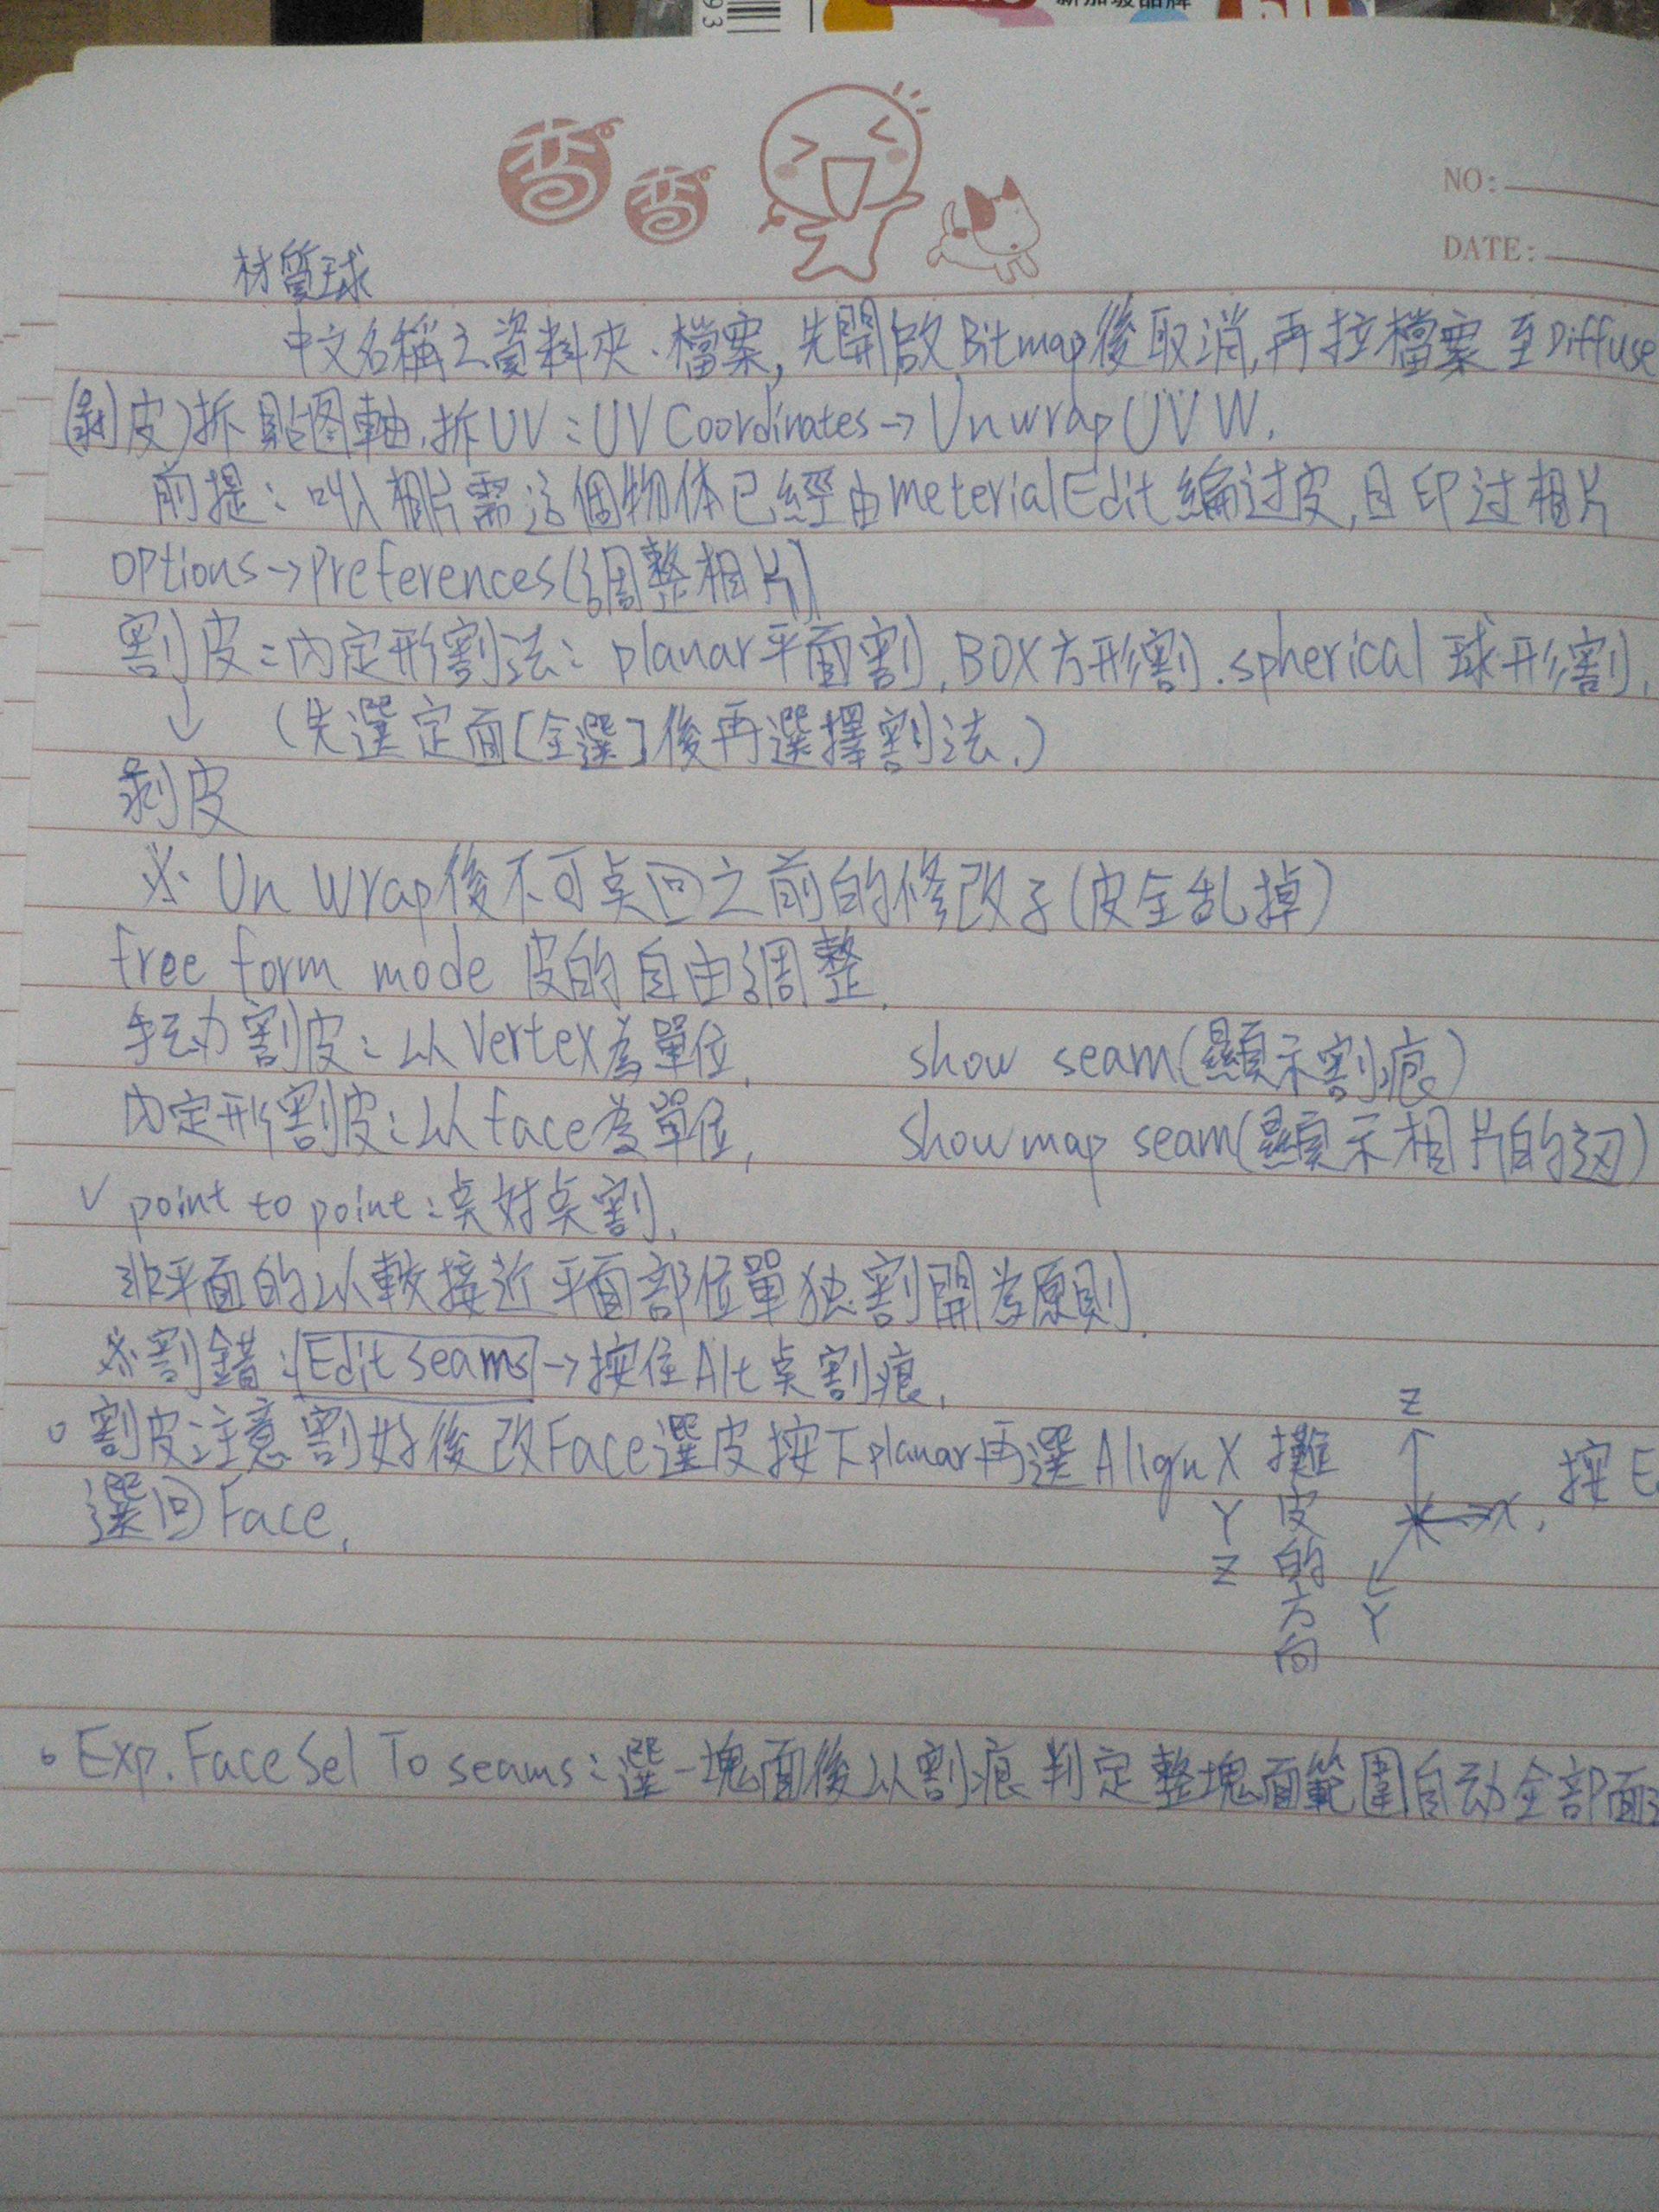 93
新加坡品牌
香
香
NO:
DATE:
材質球
中文名稱之資料夾、檔案,先開啟Bitmap後取消,再拉檔案至Diffuse
(剝皮)拆貼图軸.拆UV:UV Coordinates→Unwrap UVW.
前提:叫入相片需這個物体已經由meterialEdit編过皮,且印过相片
options→preferences(調整相片)
割皮:內定形割法:planar平面割,BOX方形割.spherical球形割,
↓ (先選定面[全選]後再選擇割法.)
剝皮
※Un wrap後不可点回之前的修改子(皮全乱掉)
free form mode 皮的自由調整.
手动割皮:以Vertex為單位, show seam(顯示割痕)
內定形割皮:以face為單位, show map seam(顯示相片的边)
✓ point to point:点对点割,
非平面的以較接近平面部位單独割開為原則.
※割錯:Edit seams→按住Alt点割痕,
。割皮注意割好後改Face選皮按下planar再選AlignX 攤 Z 按E
選回Face, Y 皮 X,
Z 的 Y
方
向
。Exp.Face Sel To seams:選一塊面後以割痕判定整塊面範圍自动全部面